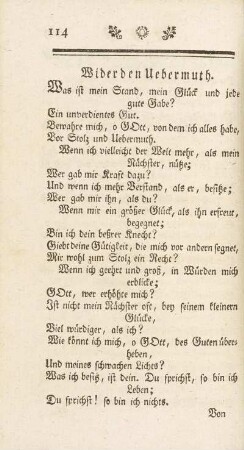 114
Wider den Uebermuth.
Was ist mein Stand, mein Glück und jede
gute Gabe?
Ein unverdientes Gut.
Bewahre mich, o GOtt, von dem ich alles habe,
Vor Stolz und Uebermuth.
Wenn ich vielleicht der Welt mehr, als mein
Nächster, nütze;
Wer gab mir Kraft dazu?
Und wenn ich mehr Verstand, als er, besitze;
Wer gab mir ihn, als du?
Wenn mir ein größer Glück, als ihn erfreut,
begegnet;
Bin ich dein beßrer Knecht?
Giebt deine Gütigkeit, die mich vor andern segnet,
Mir wohl zum Stolz ein Recht?
Wenn ich geehrt und groß, in Würden mich
erblicke;
GOtt, wer erhöhte mich?
Ist nicht mein Nächster oft, bey seinem kleinern
Glücke,
Viel würdiger, als ich?
Wie könnt ich mich, o GOtt, des Guten über-
heben,
Und meines schwachen Lichts?
Was ich besitz, ist dein. Du sprichst, so bin ich
Leben;
Du sprichst! so bin ich nichts.
Von